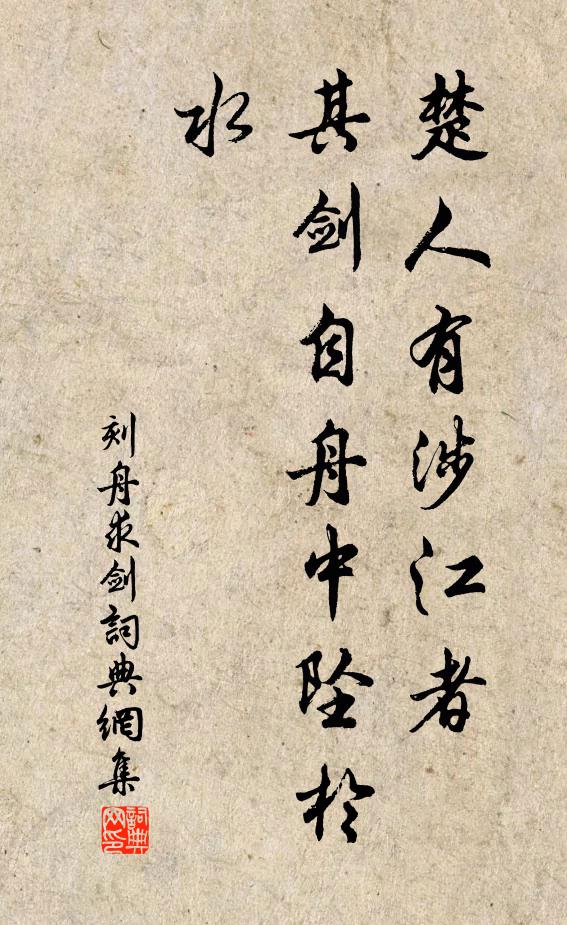 楚人有涉江者
其剑自舟中坠於
水
刻舟求剑詞典網集
詞典
网印